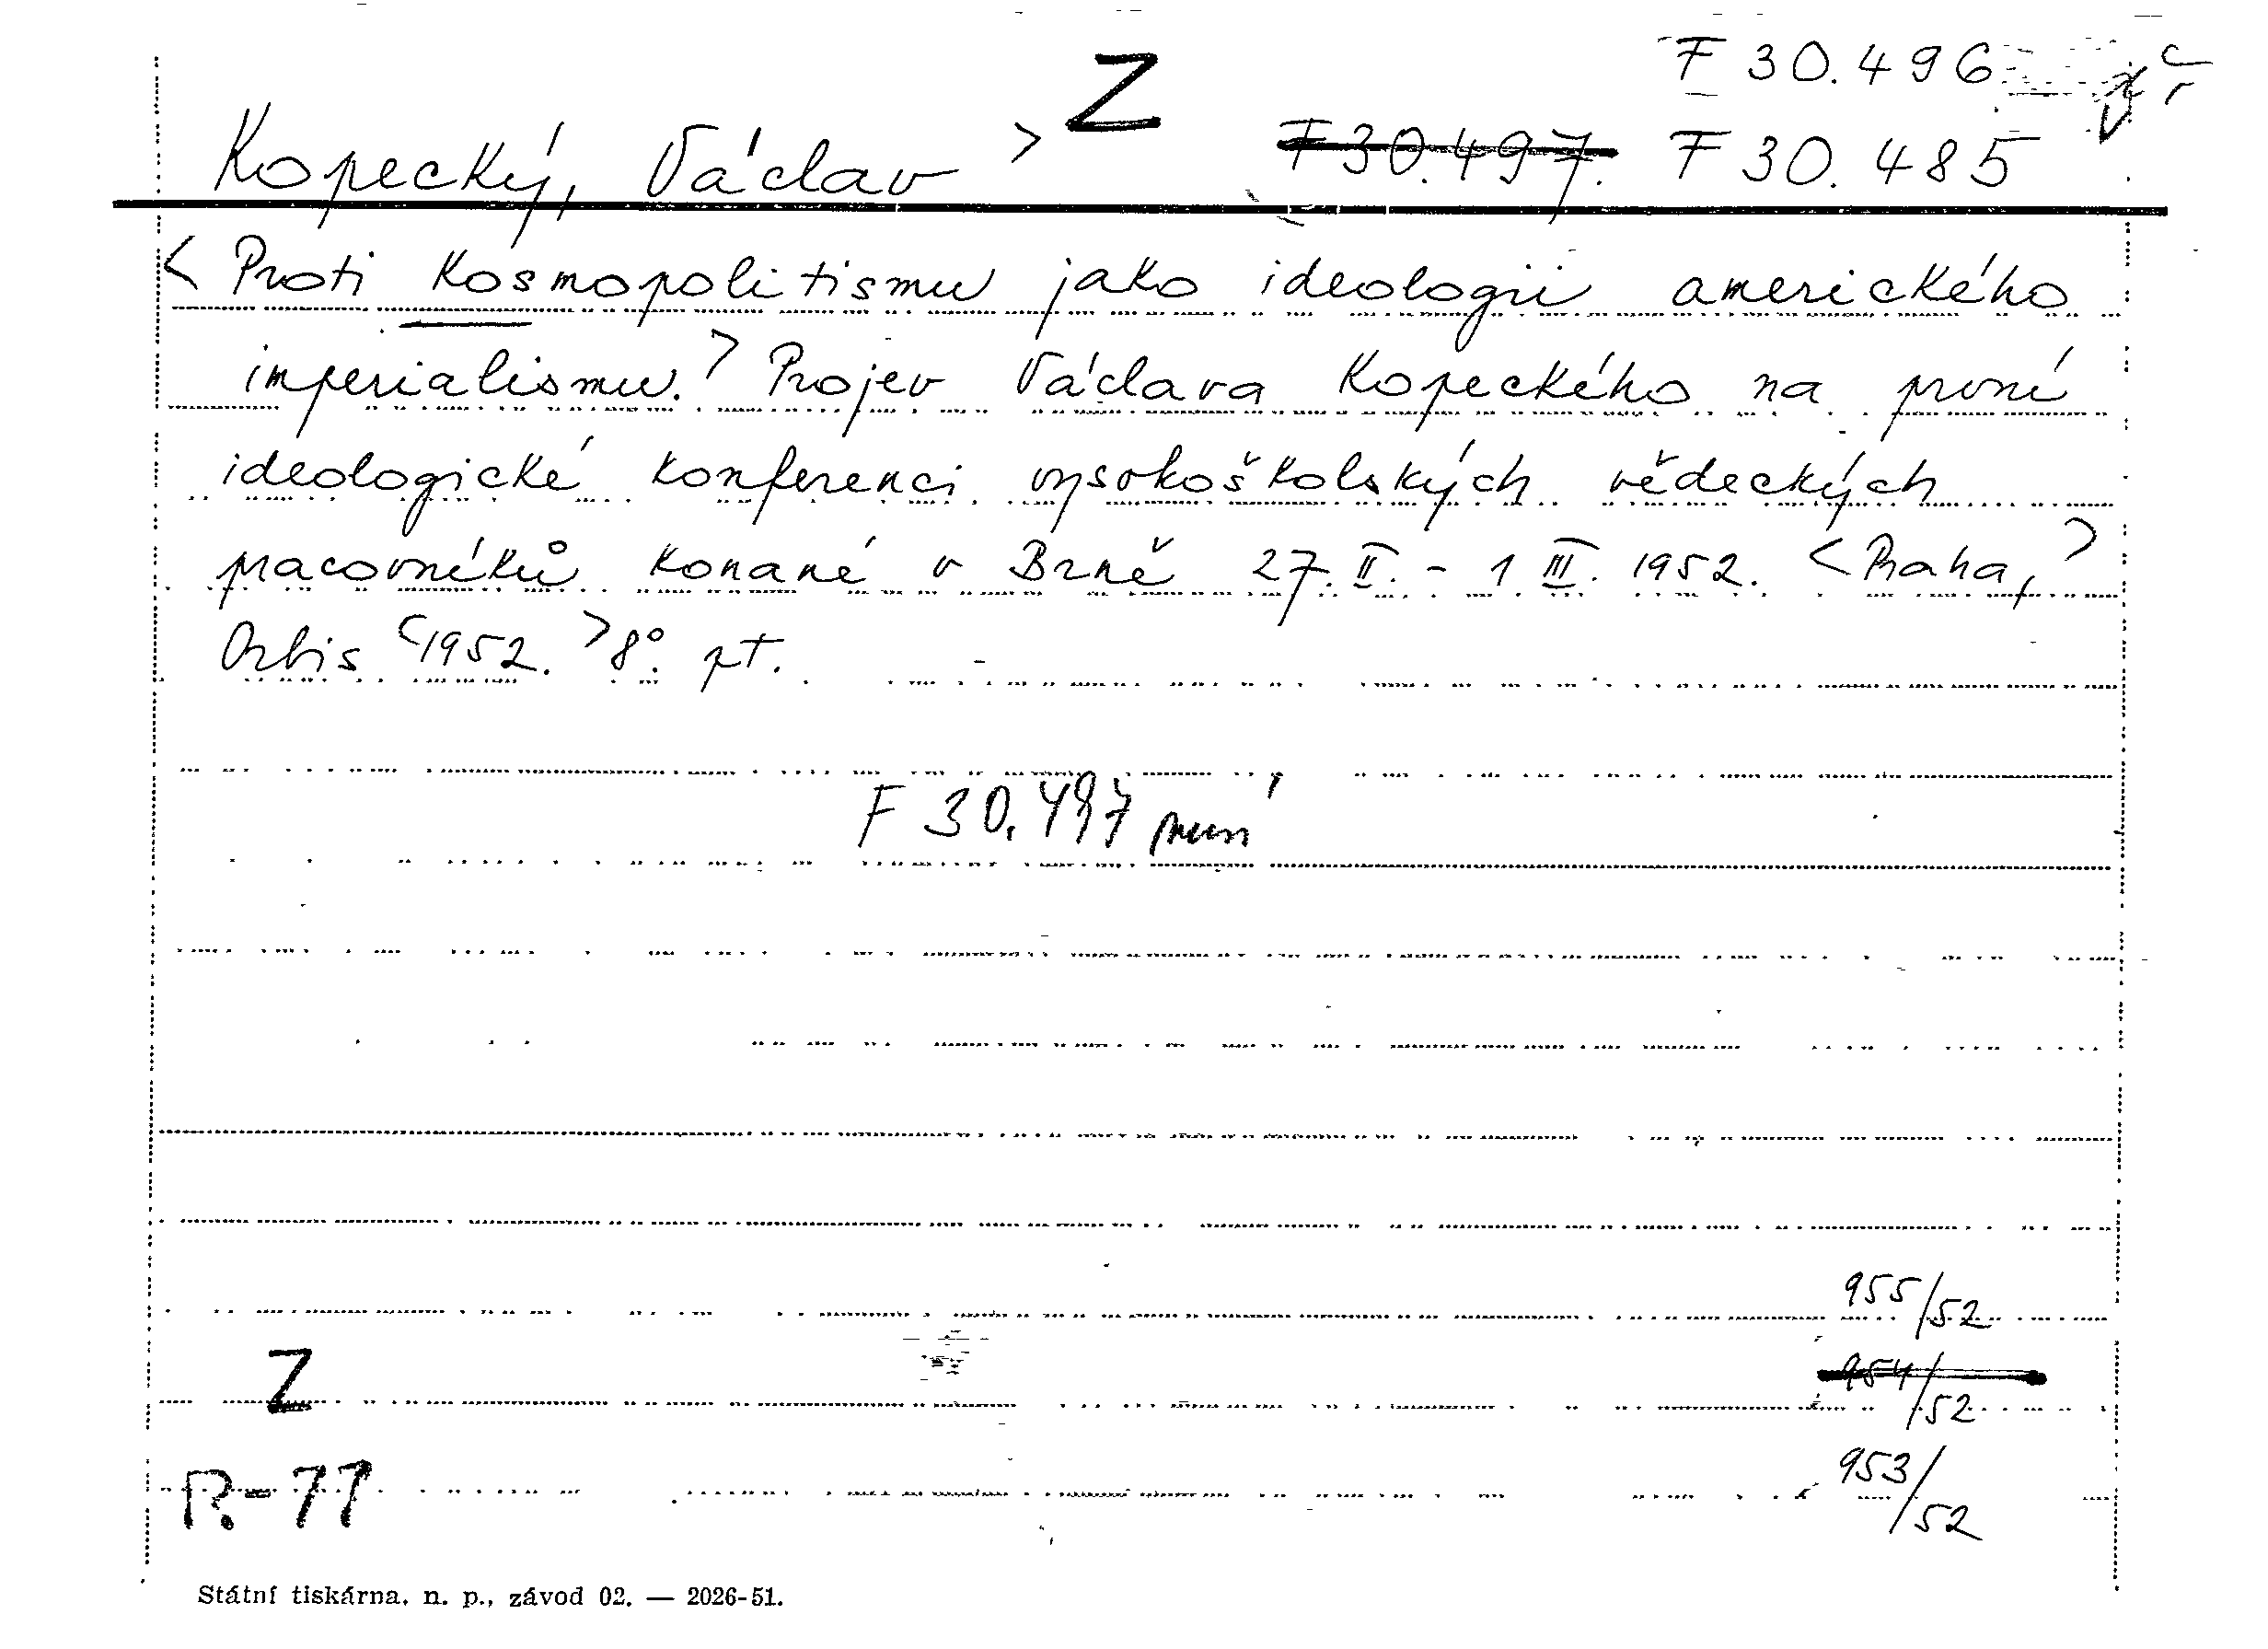 Z F 30.496
Kopecký, Václav > F 30.497. F 30.485
< Proti kosmopolitismu jako ideologii amerického
imperialismu. > Projev Václava Kopeckého na první
ideologické konferenci vysokoškolských vědeckých
pracovníků konané v Brně 27. II. - 1 III. 1952. < Praha, >
Orbis < 1952. > 8°. pt.
F 30.497 není
955/52
Z 954/52
R-77 953/52
Státní tiskárna, n. p., závod 02. — 2026-51.